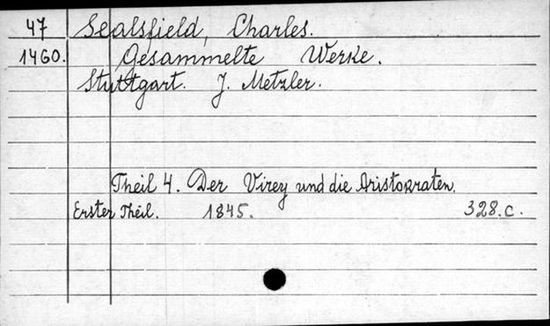 47 Sealsfield, Charles.
1460. Gesammelte Werke.
Stuttgart. J. Metzler.
Theil 4. Der Virey und die Aristokraten.
Erster Theil. 1845. 328.c.